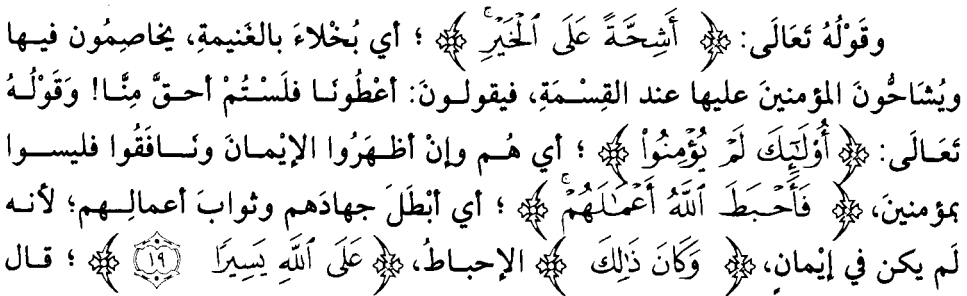 وقَوْلُهُ تَعَالَى: ﴿ أَشِحَّةً عَلَى ٱلْخَيْرِۚ ﴾ ؛ أي بُخْلاءَ بالغَنيمةِ، يخاصِمُون فيها
ويُشَاحُّونَ المؤمنينَ عليها عند القِسْمَةِ، فيقولونَ: أعْطُونَا فلَسْتُمْ أحقَّ مِنَّا! وَقَوْلُهُ
تَعَالَى: ﴿ أُوْلَٰٓئِكَ لَمْ يُؤْمِنُواْ ﴾ ؛ أي هُم وإنْ أظهَرُوا الإيْمانَ ونَافَقُوا فليسوا
بمؤمنينَ، ﴿ فَأَحْبَطَ ٱللَّهُ أَعْمَٰلَهُمْۚ ﴾ ؛ أي أبْطَلَ جهادَهم وثوابَ أعمالِهم؛ لأنه
لَم يكن في إيْمانٍ، ﴿ وَكَانَ ذَٰلِكَ ﴾ الإحباطُ، ﴿ عَلَى ٱللَّهِ يَسِيرًا ١٩ ﴾ ؛ قال